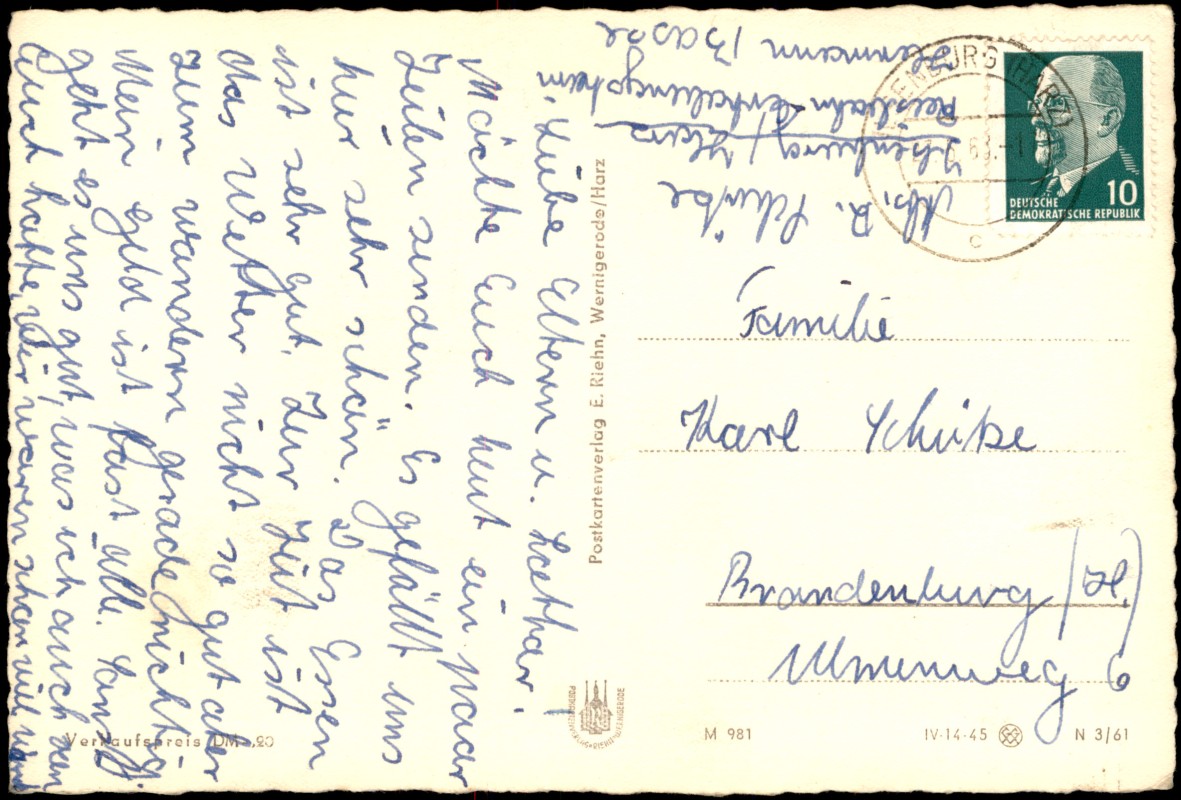 Liebe Eltern u. Lothar!
Möchte Euch heut ein paar
Zeilen senden. Es gefällt uns
hier sehr schön. Das Essen
ist sehr gut. Zur Zeit ist
das Wetter nicht so gut aber
zum wandern gerade richtig.
Mein Geld ist fast alle. Sonst
geht es uns gut, was ich auch von
Euch hoffe, wir waren schon viel
Postkartenverlag E. Riehn, Wernigerode/Harz
Verkaufspreis DM -,20
Abs. R. Schütze
Ilsenburg/Harz
Reichsbahn-Erholungsheim
Hermann Basse
ILSENBURG (HARZ)
63.-1
c
10
DEUTSCHE
DEMOKRATISCHE REPUBLIK
Familie
Karl Schütze
Brandenburg/(H.)
Ulmenweg 6
M 981
IV-14-45
N 3/61